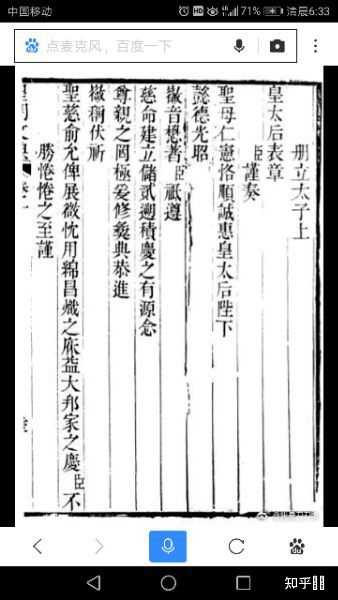 中国移动 71% 清晨6:33
点麦克风，百度一下
冊立太子上
皇太后表章
臣謹奏
聖母仁憲恪順誠惠皇太后陛下
懿德光昭
徽音懋著臣祗遵
慈命建立儲貳遡積慶之有源念
尊親之罔極爰修彞典恭進
徽稱伏祈
聖慈俞允俾展微忱用綿昌熾之庥益大邦家之慶臣不
勝惓惓之至謹
知乎